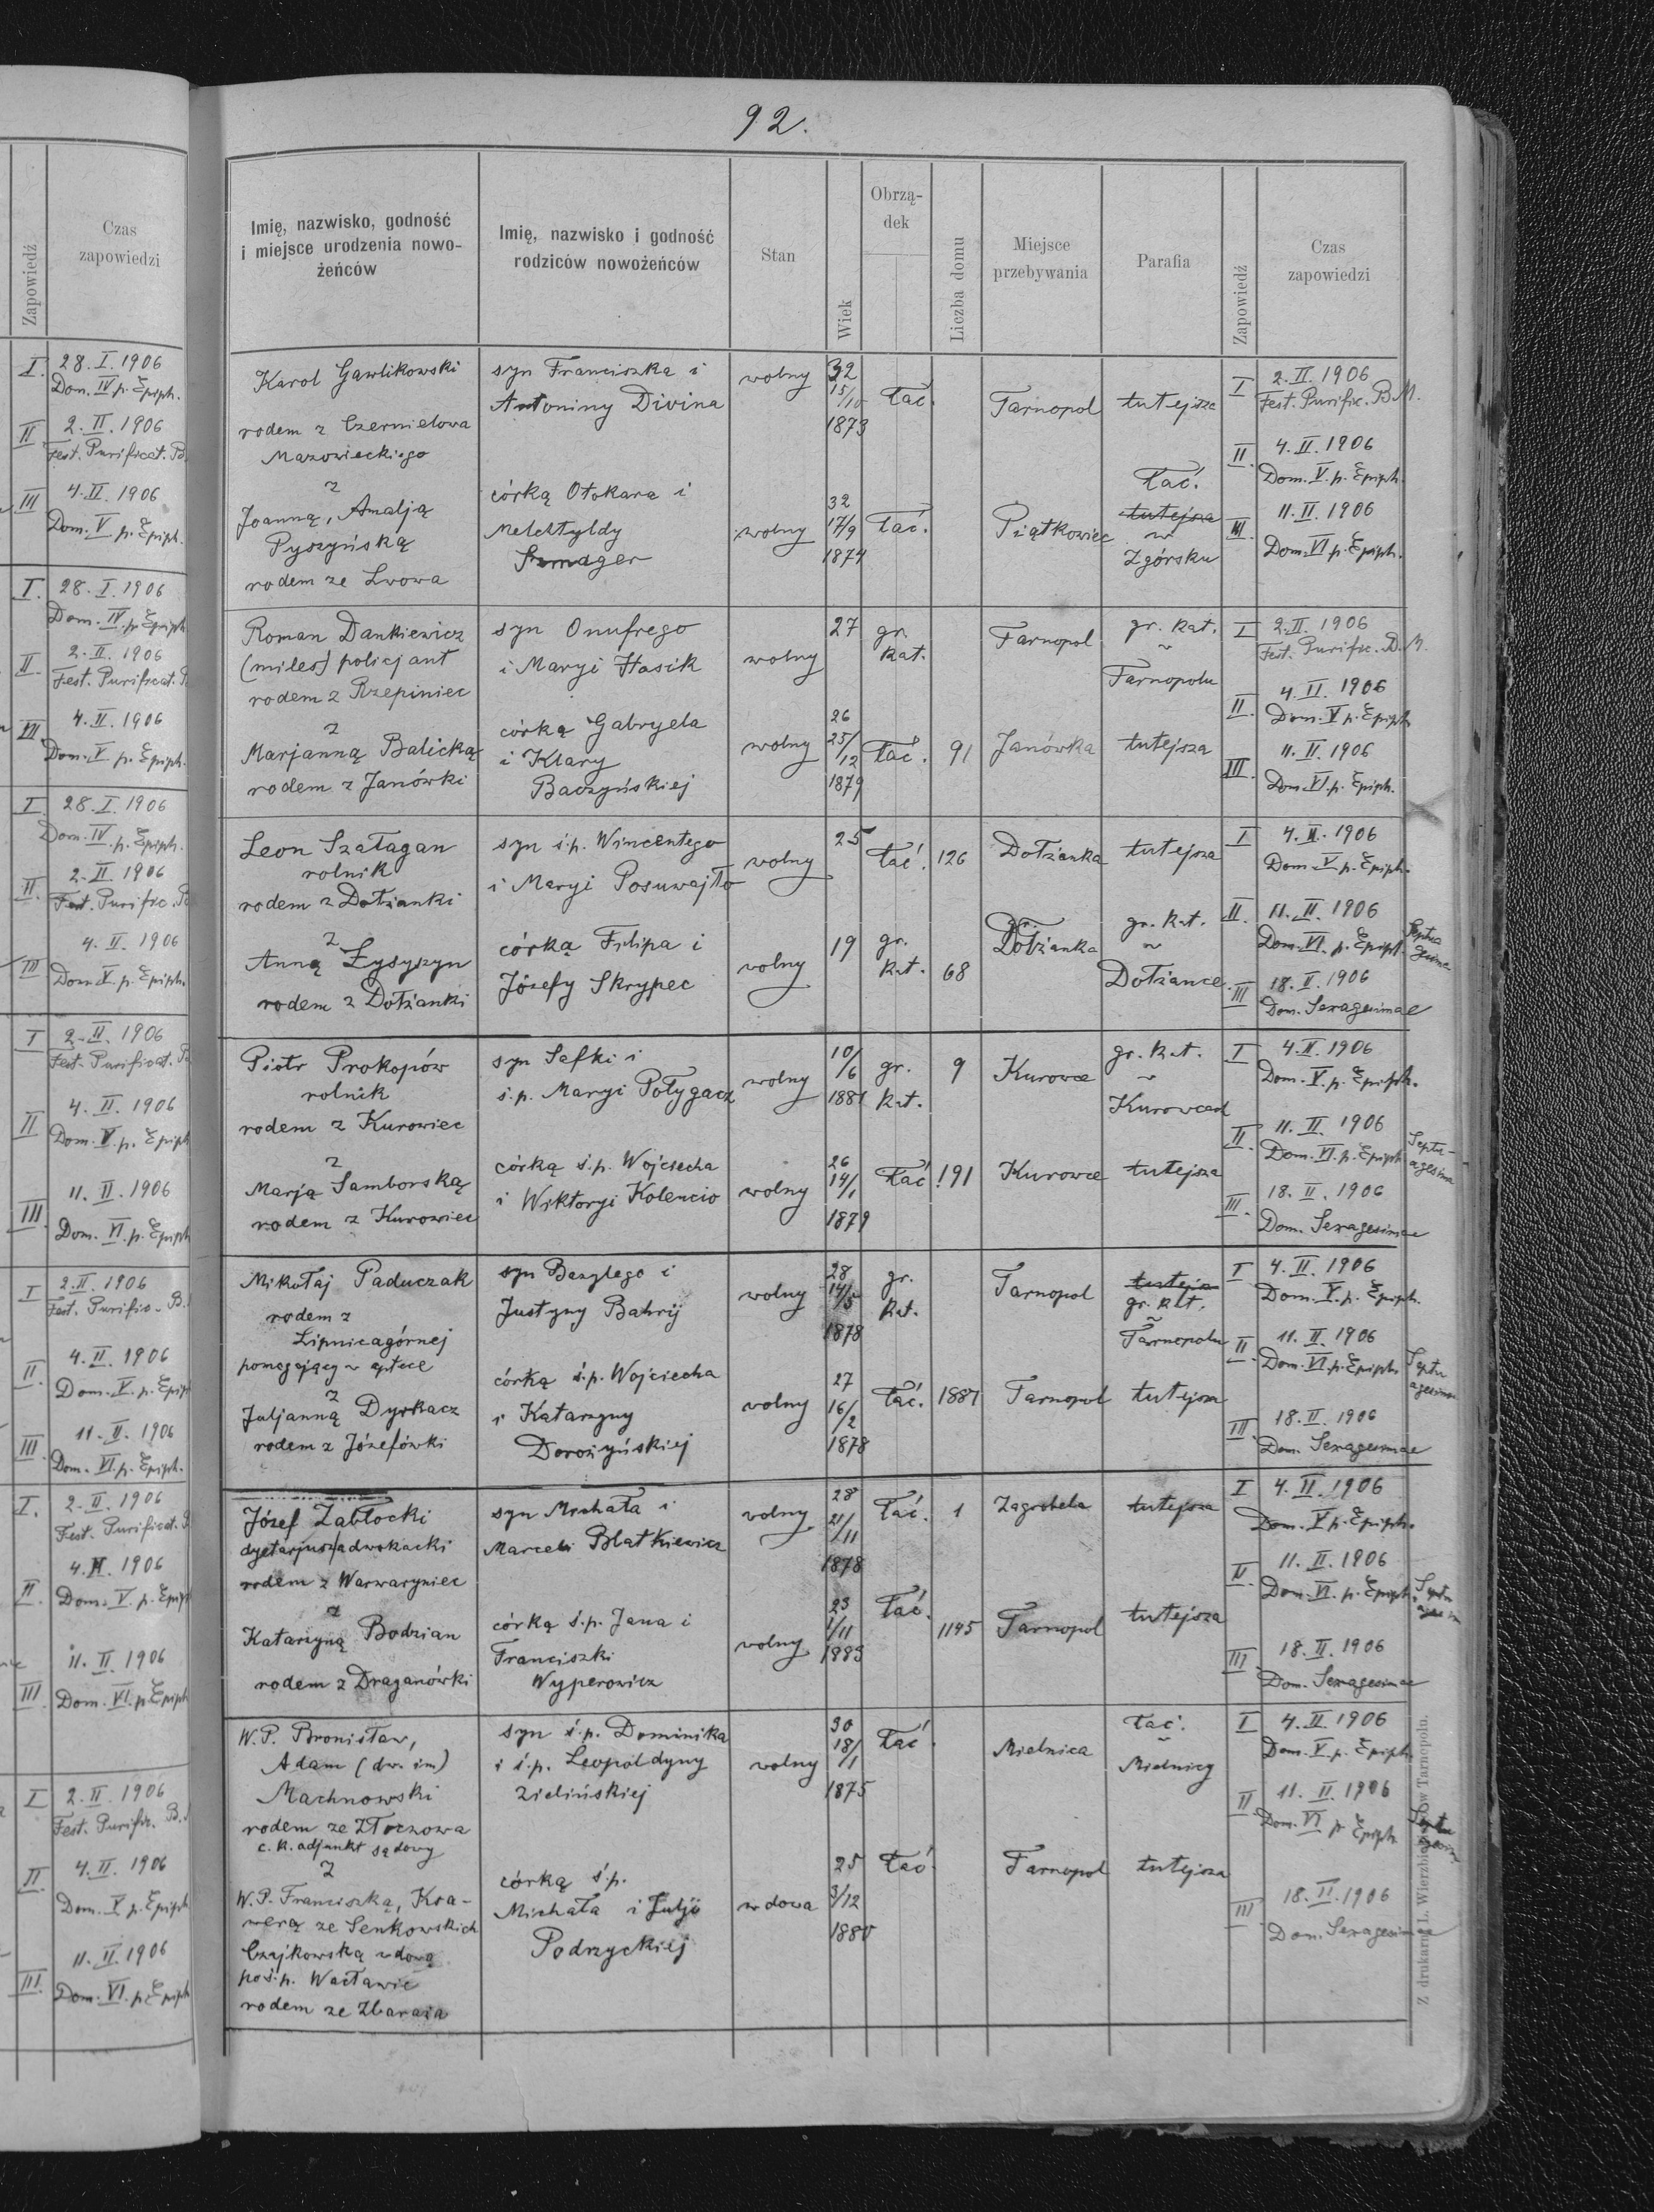 92.
Zapowiedź
Czas
zapowiedzi
I. 28. I. 1906
Dom. IV p. Epiph.
II 2. II. 1906
Fest. Purificat. B.
III 4. II. 1906
Dom. V p. Epiph.
I. 28. I. 1906
Dom. IV. p. Epiph
II. 2. II. 1906
Fest. Purificat.
III. 4. II. 1906
Dom. V p. Epiph.
I 28. I. 1906
Dom. IV. p. Epiph.
II. 2. II. 1906
Fest. Purific.
III 4. II. 1906
Dom. V. p. Epiph.
I 2. II. 1906
Fest. Purificat.
II 4. II. 1906
Dom. V. p. Epiph
III 11. II. 1906
Dom. VI. p. Epiph
I 2. II. 1906
Fest. Purific. B.
II. 4. II. 1906
Dom. V. p. Epip
III. 11. II. 1906
Dom. VI. p. Epiph.
I. 2. II. 1906
Fest. Purificat.
II. 4. II. 1906
Dom. V. p. Epip
III. 11. II. 1906
Dom. VI. p. Epiph
I 2. II. 1906
Fest. Purific. B.
II. 4. II. 1906
Dom. V p. Epiph
III. 11. II. 1906
Dom. VI. p. Epiph
Imię, nazwisko, godność
i miejsce urodzenia nowo-
żeńców
Imię, nazwisko i godność
rodziców nowożeńców
Stan
Wiek
Obrzą-
dek
Liczba domu
Miejsce
przebywania
Parafia
Zapowiedź
Czas
zapowiedzi
Karol Gawlikowski
rodem z Czernielowa
Mazowieckiego
syn Franciszka i
Antoniny Divina
wolny
32
15/10
1873
łać.
Tarnopol
tutejsza
I 2. II. 1906
Fest. Purific. B. M.
II. 4. II. 1906
Dom. V. p. Epiph.
z
Joanną, Amalją
Pyszyńską
rodem ze Lwowa
córką Otokara i
Melchtyldy
wolny
32
17/9
1874
łać.
Piątkowiec
łać.
tutejsza
w
Zgórsku
III. 11. II. 1906
Dom. VI p. Epiph.
Roman Dankiewicz
(miles) policjant
rodem z Rzepiniec
syn Onufrego
i Maryi Hasik
wolny
27
gr.
kat.
Tarnopol
gr. kat.
w
Tarnopolu
I 2. II. 1906
Fest. Purific. B. M.
II. 4. II. 1906
Dom. V p. Epiph
z
Marjanną Balicką
rodem z Janówki
córką Gabryela
i Klary
Baczyńskiej
wolny
26
25/12
1879
łać.
91
Janówka
tutejsza
III. 11. II. 1906
Dom. VI. p. Epiph.
Leon Szałagan
rolnik
rodem z Dołżanki
syn ś.p. Wincentego
i Maryi Posuwajło
wolny
25
łać.
126
Dołżanka
tutejsza
I 4. II. 1906
Dom. V p. Epiph.
z
Anną Łysyszyn
rodem z Dołżanki
córką Filipa i
Józefy Skrypec
wolny
19
gr.
kat.
68
Dołżanka
gr. kat.
w
Dołżance
II. 11. II. 1906
Dom. VI. p. Epiph.
III 18. II. 1906
Dom. Sexagesimae
Piotr Prokopów
rolnik
rodem z Kurowiec
syn Safki i
ś.p. Maryi Połygacz
wolny
10/6
1881
gr.
kat.
9
Kurowce
gr. kat.
w
Kurowcach
I 4. II. 1906
Dom. V. p. Epiph.
II. 11. II. 1906
Dom. VI. p. Epiph
Septu-
agesima
z
Marją Samborską
rodem z Kurowiec
córką ś.p. Wojciecha
i Wiktoryi Kolencio
wolny
26
14/1
1879
łać.
191
Kurowce
tutejsza
III. 18. II. 1906
Dom. Sexagesimae
Mikołaj Paduczak
rodem z
Lipnicagórnej
pomagający w aptece
syn Bazylego i
Justyny Bahrij
wolny
28
14/5
1878
gr.
kat.
Tarnopol
tutejsza
gr. kat.
w
Tarnopolu
I 4. II. 1906
Dom. V. p. Epiph.
II. 11. II. 1906
Dom. VI. p. Epiph
Septu
agesima
z
Juljanną Dyrkacz
rodem z Józefówki
córką ś.p. Wojciecha
i Katarzyny
Dorożyńskiej
wolny
27
16/2
1878
łać.
1887
Tarnopol
tutejsza
III. 18. II. 1906
Dom. Sexagesimae
Józef Zabłocki
dyetarjusz adwokacki
rodem z Warwaryniec
syn Michała i
Marceli Blatkiewicz
wolny
28
21/11
1878
łać.
1
Zagrobela
tutejsza
I 4. II. 1906
Dom. V p. Epiph.
II. 11. II. 1906
Dom. VI. p. Epiph
z
Katarzyną Bodzian
rodem z Draganówki
córką ś.p. Jana i
Franciszki
Wyperowicz
wolny
23
1/11
1883
łać.
1145
Tarnopol
tutejsza
III 18. II. 1906
Dom. Sexagesimae
W. P. Bronisław,
Adam (dw. im)
Machnowski
rodem ze Złoczowa
c. k. adjunkt sądowy
syn ś.p. Dominika
i ś.p. Leopoldyny
Zielińskiej
wolny
30
18/11
1875
łać.
Mielnica
łać.
w
Mielnicy
I 4. II. 1906
Dom. V. p. Epiph.
II 11. II. 1906
Dom. VI p Epiph.
z
W. P. Franciszką, Ksa-
werą ze Senkowskich
Czajkowską wdową
po ś.p. Wacławie
rodem ze Zbaraża
córką ś.p.
Michała i Julji
Podrzyckiej
wdowa
25
3/12
1880
łać.
Tarnopol
tutejsza
III 18. II. 1906
Dom. Sexagesimae
Z drukarni L. Wierzbickiego w Tarnopolu.